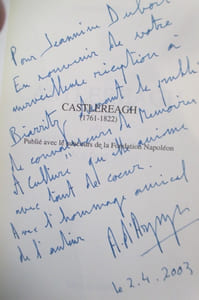 Pour Jeannine Dubois
En souvenir de votre
merveilleuse réception à
Biarritz, devant le public
CASTLEREAGH
(1761-1822)
de connaisseurs de "Mémoires
Publié avec le concours de la Fondation Napoléon
et Culture" qu'elle anime
avec tant de coeur.
Avec l'hommage amical
de l'auteur
le 2.4.2003